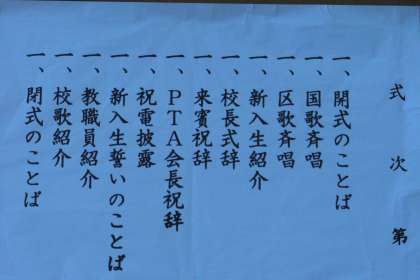 式次第
一、開式のことば
一、国歌斉唱
一、区歌斉唱
一、新入生紹介
一、校長式辞
一、来賓祝辞
一、PTA会長祝辞
一、祝電披露
一、新入生誓いのことば
一、教職員紹介
一、校歌紹介
一、閉式のことば